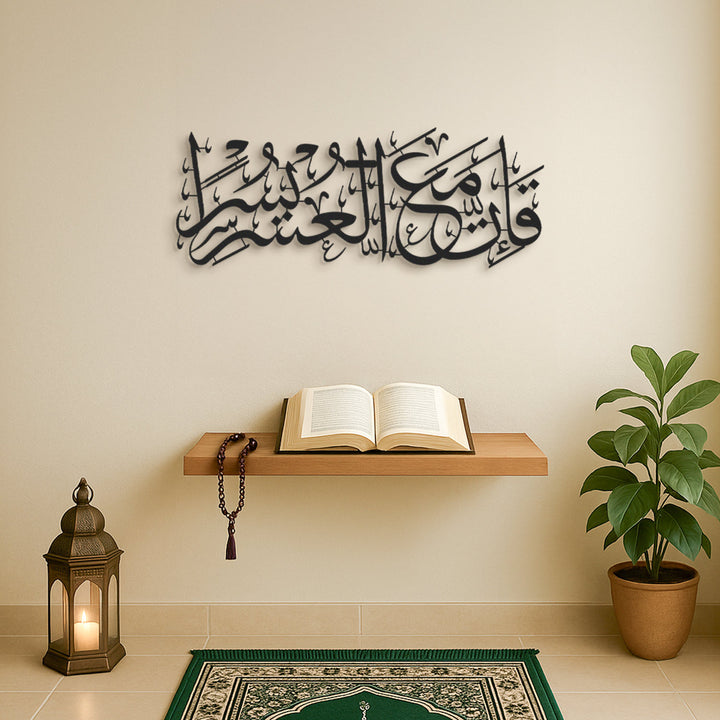 فَإِنَّ مَعَ الْعُسْرِ يُسْرًا